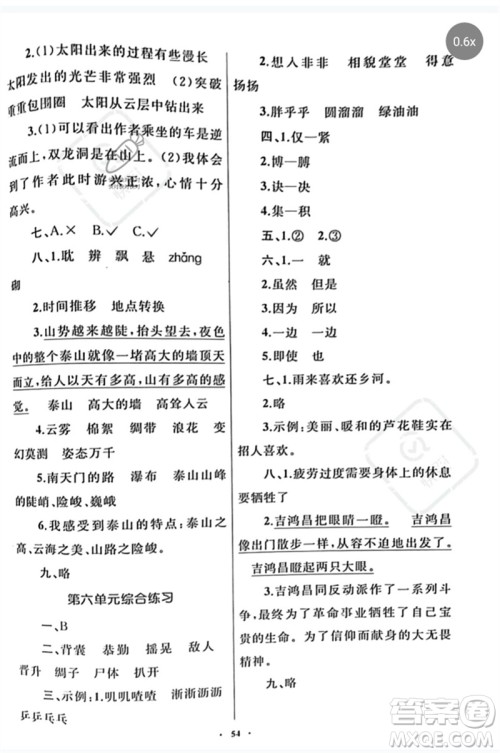 0.6x
2.(1)太阳出来的过程有些漫长
太阳发出的光芒非常强烈 (2)突破
重重包围圈 太阳从云层中钻出来
3.(1)可以看出作者乘坐的车是逆
流而上,双龙洞在山上。(2)我体会
到了作者此时游兴正浓,心情十分
高兴。
七、A.× B.✓ C.✓
八、1.耽 辨 飘 悬 zhǎng
御
2.时间推移 地点转换
3.山势越来越陡,抬头望去,夜色
中的整个泰山就像一堵高大的墙顶天
而立,给人以天有多高,山就有多高的
感觉。 泰山 高大的墙 高耸入云
4.云雾 棉絮 绸带 浪花 变
幻莫测 姿态万千
5.南天门的路 瀑布 泰山山路
的陡峭、险峻、巍峨
6.我感受到了泰山的特点:泰山之
高、云海之美、山路之险峻。
九、略
第六单元综合练习
一、B
二、背囊 恭勤 摇晃 敌人
晋升 绸子 尸体 扒开
三、1.示例:叽叽喳喳 淅淅沥沥
乒乒乓乓
2.想人非非 相貌堂堂 得意
扬扬
3.胖乎乎 圆溜溜 绿油油
四、1.仅—紧
2.博—膊
3.诀—决
4.集—积
五、1.② 2.③
六、1.一 就
2.虽然 但是
3.因为 所以
4.一边 一边
5.即使 也
七、1.雨来喜欢还乡河。
2.略
3.示例:美丽、暖和的芦花鞋实在
招人喜欢。
八、1.疲劳过度需要身体上的休息
要牺牲了
2.吉鸿昌把眼睛一瞪。 吉鸿昌
像出门散步一样,从容不迫地走向刑
场。 吉鸿昌瞪起两只大眼。
3.吉鸿昌同反动派作了一系列斗
争,最终为了革命事业牺牲了自己宝
贵的生命。为了信仰而献身的大无畏
精神。
九、略
54